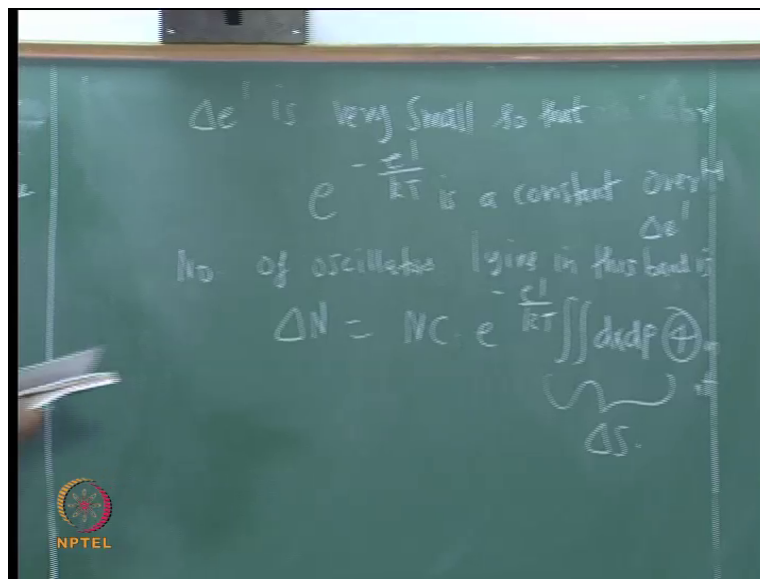 Δe' is very small so that
e^{-e'/kT} is a constant over
Δe'
No of oscillator lying in this band is
ΔN = NC. e^{-e'/kT} ∬ dxdp ④
ΔS.
NPTEL